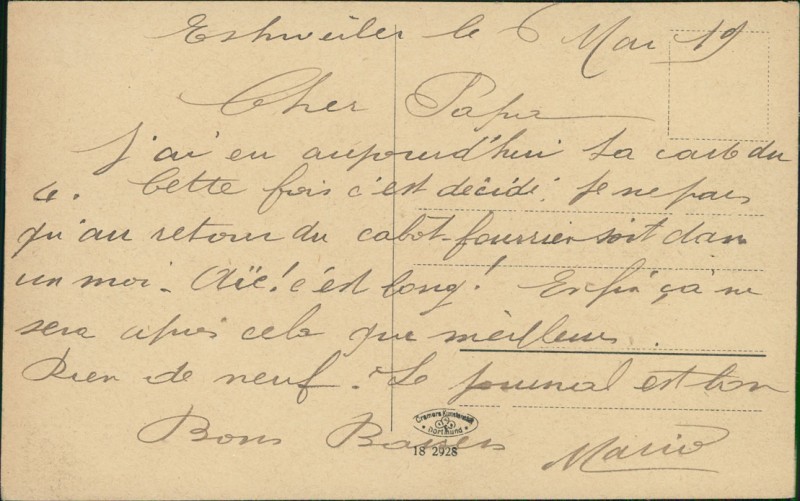 Eshweiler le 6 Mai 19
Cher Papa
J'ai eu aujourd'hui ta carte du
4. Cette fois c'est décidé, je ne pars
qu'au retour du cabot-fourrier soit dans
un moi. Aïe! c'est long! Enfin ça ne
sera après cela que meilleur.
Rien de neuf. Le journal est bon
Bons Baisers
Mario
Cramers Kunstanstalt
Dortmund
18 2928